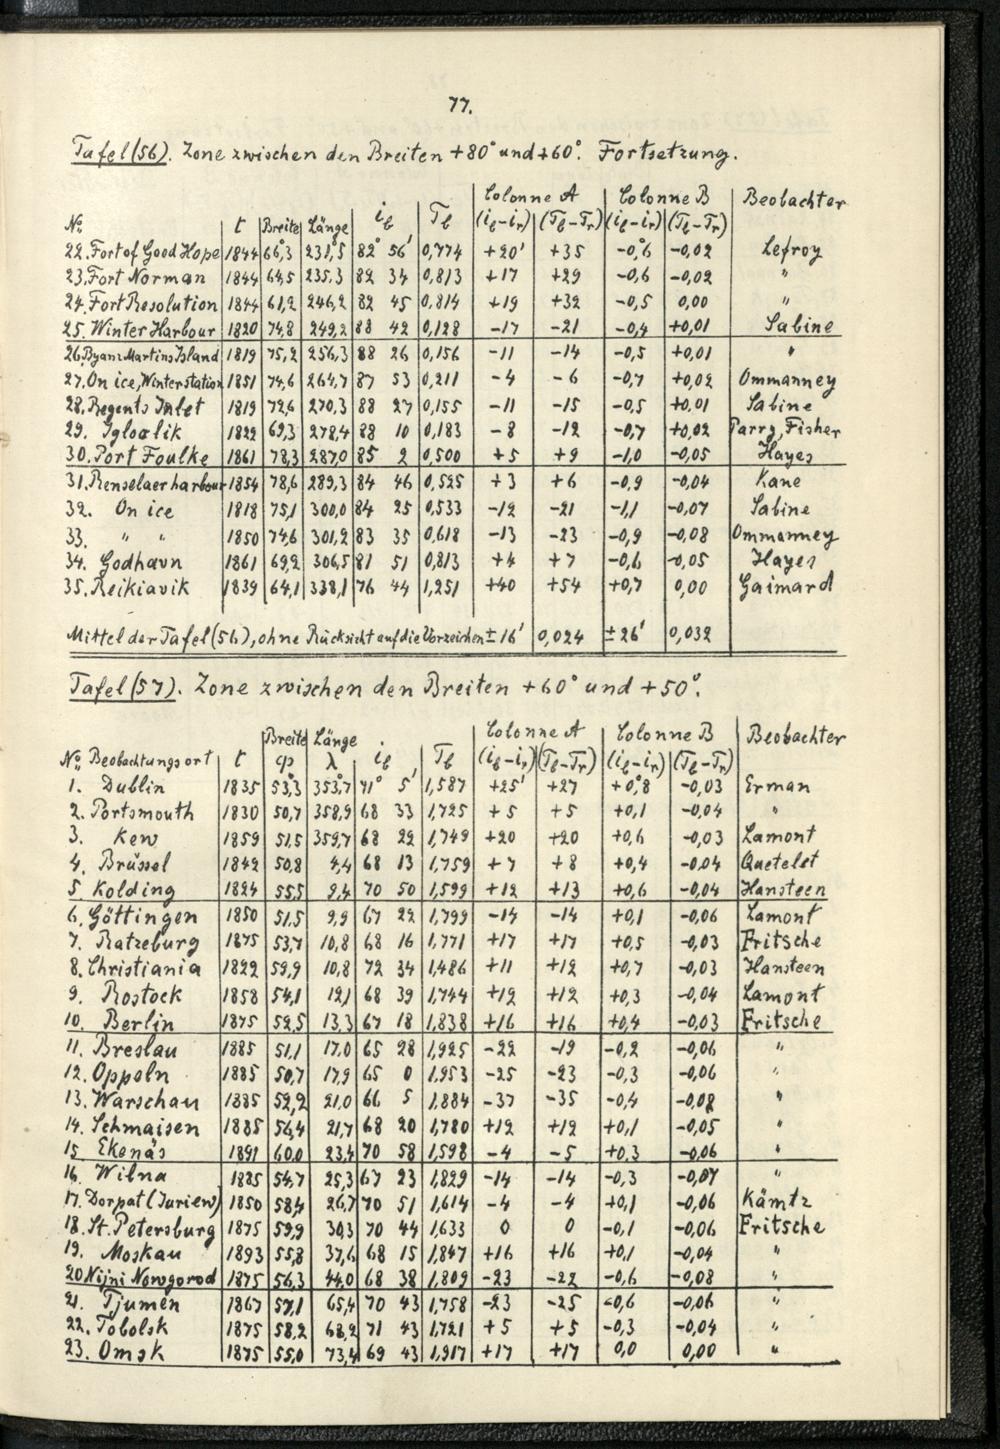 77.
Tafel (56). Zone zwischen den Breiten +80° und +60°. Fortsetzung.
Colonne A Colonne B Beobachter
No t Breite Länge i_b T_b (i_b-i_r) (T_b-T_r) (i_b-i_r) (T_b-T_r)
22. Fort of Good Hope 1844 66°,3 231°,5 82° 56' 0,774 +20' +35 -0°,6 -0,02 Lefroy
23. Fort Norman 1844 64,5 235,3 82 34 0,813 +17 +29 -0,6 -0,02 "
24. Fort Resolution 1844 61,2 246,2 82 45 0,814 +19 +32 -0,5 0,00 "
25. Winter Harbour 1820 74,8 249,2 88 42 0,128 -17 -21 -0,4 +0,01 Sabine
26. Byam Martins Island 1819 75,2 256,3 88 26 0,156 -11 -14 -0,5 +0,01 "
27. On ice, Winterstation 1851 74,6 264,7 87 53 0,211 -4 -6 -0,7 +0,02 Ommanney
28. Regents Inlet 1819 72,6 270,3 88 27 0,155 -11 -15 -0,5 +0,01 Sabine
29. Igloolik 1822 69,3 278,4 88 10 0,183 -8 -12 -0,7 +0,02 Parry, Fisher
30. Port Foulke 1861 78,3 287,0 85 2 0,500 +5 +9 -1,0 -0,05 Hayes
31. Renselaerharbour 1854 78,6 289,3 84 46 0,525 +3 +6 -0,9 -0,04 Kane
32. On ice 1818 75,1 300,0 84 25 0,533 -12 -21 -1,1 -0,07 Sabine
33. " " 1850 74,6 301,2 83 35 0,618 -13 -23 -0,9 -0,08 Ommanney
34. Godhavn 1861 69,2 306,5 81 51 0,813 +4 +7 -0,6 -0,05 Hayes
35. Reikiavik 1839 64,1 338,1 76 44 1,251 +40 +54 +0,7 0,00 Gaimard
Mittel der Tafel (56), ohne Rücksicht auf die Vorzeichen ± 16' 0,024 ± 26' 0,032
Tafel (57). Zone zwischen den Breiten +60° und +50°.
Breite Länge Colonne A Colonne B Beobachter
No. Beobachtungsort t φ λ i_b T_b (i_b-i_r) (T_b-T_r) (i_b-i_r) (T_b-T_r)
1. Dublin 1835 53°,3 353°,7 71° 5' 1,587 +25' +27 +0°,8 -0,03 Erman
2. Portsmouth 1830 50,7 358,9 68 33 1,725 +5 +5 +0,1 -0,04 "
3. Kew 1859 51,5 359,7 68 22 1,749 +20 +20 +0,6 -0,03 Lamont
4. Brüssel 1842 50,8 4,4 68 13 1,759 +7 +8 +0,4 -0,04 Quetelet
5 Kolding 1824 55,5 9,4 70 50 1,599 +12 +13 +0,6 -0,04 Hansteen
6. Göttingen 1850 51,5 9,9 67 22 1,799 -14 -14 +0,1 -0,06 Lamont
7. Ratzeburg 1875 53,7 10,8 68 16 1,771 +17 +17 +0,5 -0,03 Fritsche
8. Christiania 1822 59,9 10,8 72 34 1,486 +11 +12 +0,7 -0,03 Hansteen
9. Rostock 1858 54,1 12,1 68 39 1,744 +12 +12 +0,3 -0,04 Lamont
10. Berlin 1875 52,5 13,3 67 18 1,838 +16 +16 +0,4 -0,03 Fritsche
11. Breslau 1885 51,1 17,0 65 28 1,925 -22 -19 -0,2 -0,06 "
12. Oppeln 1885 50,7 17,9 65 0 1,953 -25 -23 -0,3 -0,06 "
13. Warschau 1885 52,2 21,0 66 5 1,884 -37 -35 -0,4 -0,08 "
14. Schmaisen 1885 56,4 21,7 68 20 1,780 +12 +12 +0,1 -0,05 "
15. Ekenäs 1891 60,0 23,4 70 58 1,598 -4 -5 +0,3 -0,06 "
16. Wilna 1885 54,7 25,3 67 23 1,829 -14 -14 -0,3 -0,07 "
17. Dorpat (Juriew) 1850 58,4 26,7 70 51 1,614 -4 -4 +0,1 -0,06 Kämtz
18. St. Petersburg 1875 59,9 30,3 70 44 1,633 0 0 -0,1 -0,06 Fritsche
19. Moskau 1893 55,8 37,6 68 15 1,847 +16 +16 +0,1 -0,04 "
20 Nijni Nowgorod 1875 56,3 44,0 68 38 1,809 -23 -22 -0,6 -0,08 "
21. Tjumen 1867 57,1 65,4 70 43 1,758 -23 -25 -0,6 -0,06 "
22. Tobolsk 1875 58,2 68,2 71 43 1,721 +5 +5 -0,3 -0,04 "
23. Omsk 1875 55,0 73,4 69 43 1,917 +17 +17 0,0 0,00 "